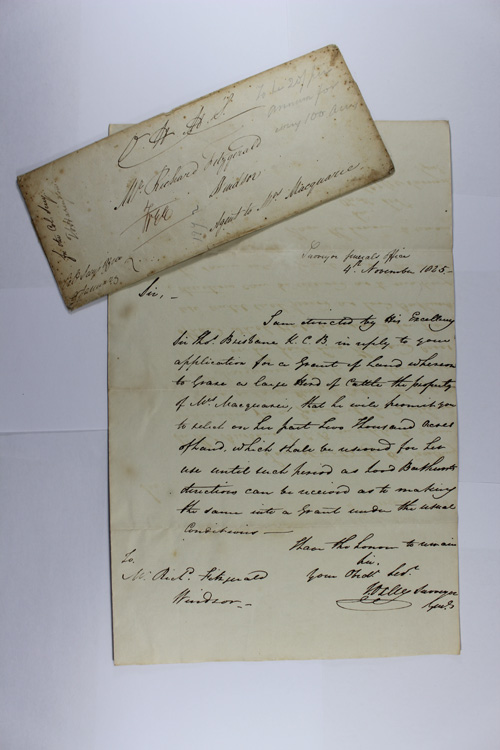 O. H. M. S.
Mr. Richard Fitzgerald
Windsor
Agent to Mrs. Macquarie
annum for
every 100 Acres
Surveyor General's Office
4th November 1825-
Sir,-
I am directed by His Excellency
Sir Thos. Brisbane K.C.B. in reply to your
application for a Grant of Land whereon
to Graze a large Herd of Cattle the property
of Mrs. Macquarie, that he will permit you
to select on her part two thousand Acres
of land, which shall be reserved for her
use until such period as Lord Bathurst's
directions can be received as to making
the same into a Grant under the usual
Conditions-
I have the honor to remain
Sir.
Your Obedt. Sert.
J Oxley Surveyor
Genl.
To
Mr. Richd. Fitzgerald
Windsor-